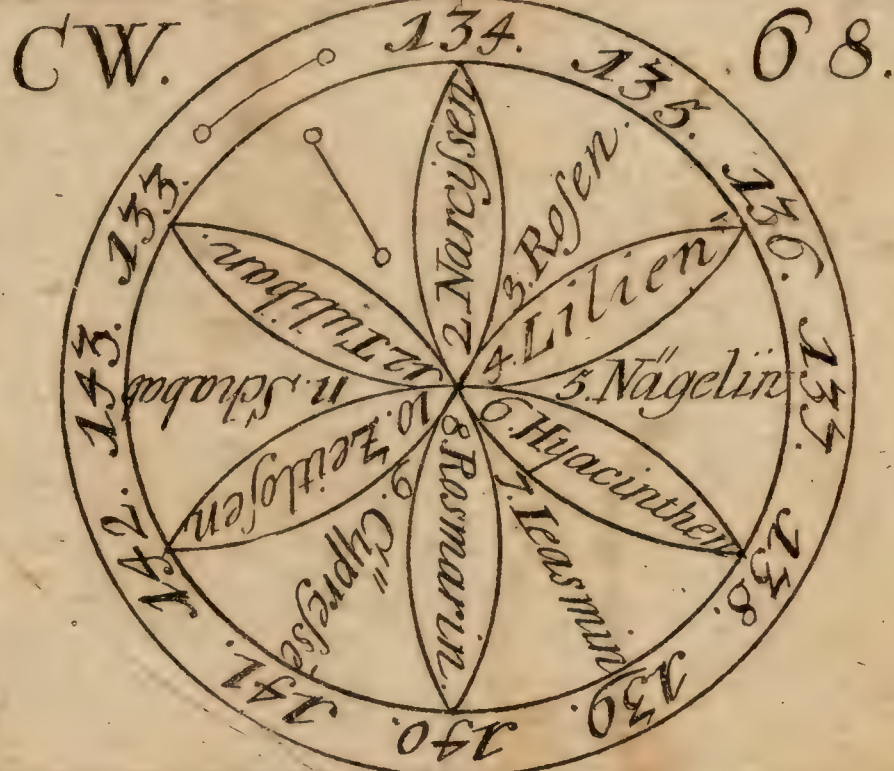 CW. 68.
134.
135.
136.
137.
138.
139.
140.
141.
142.
143.
133.
2. Narcyſsen
3. Roſen.
4. Lilien
5. Nägelin
6. Hyacinthen
7. Ieasmin
8. Rosmarin.
9. Cÿpreſse
10. Zeitloſen
11. Schabab
12. Tuliban.